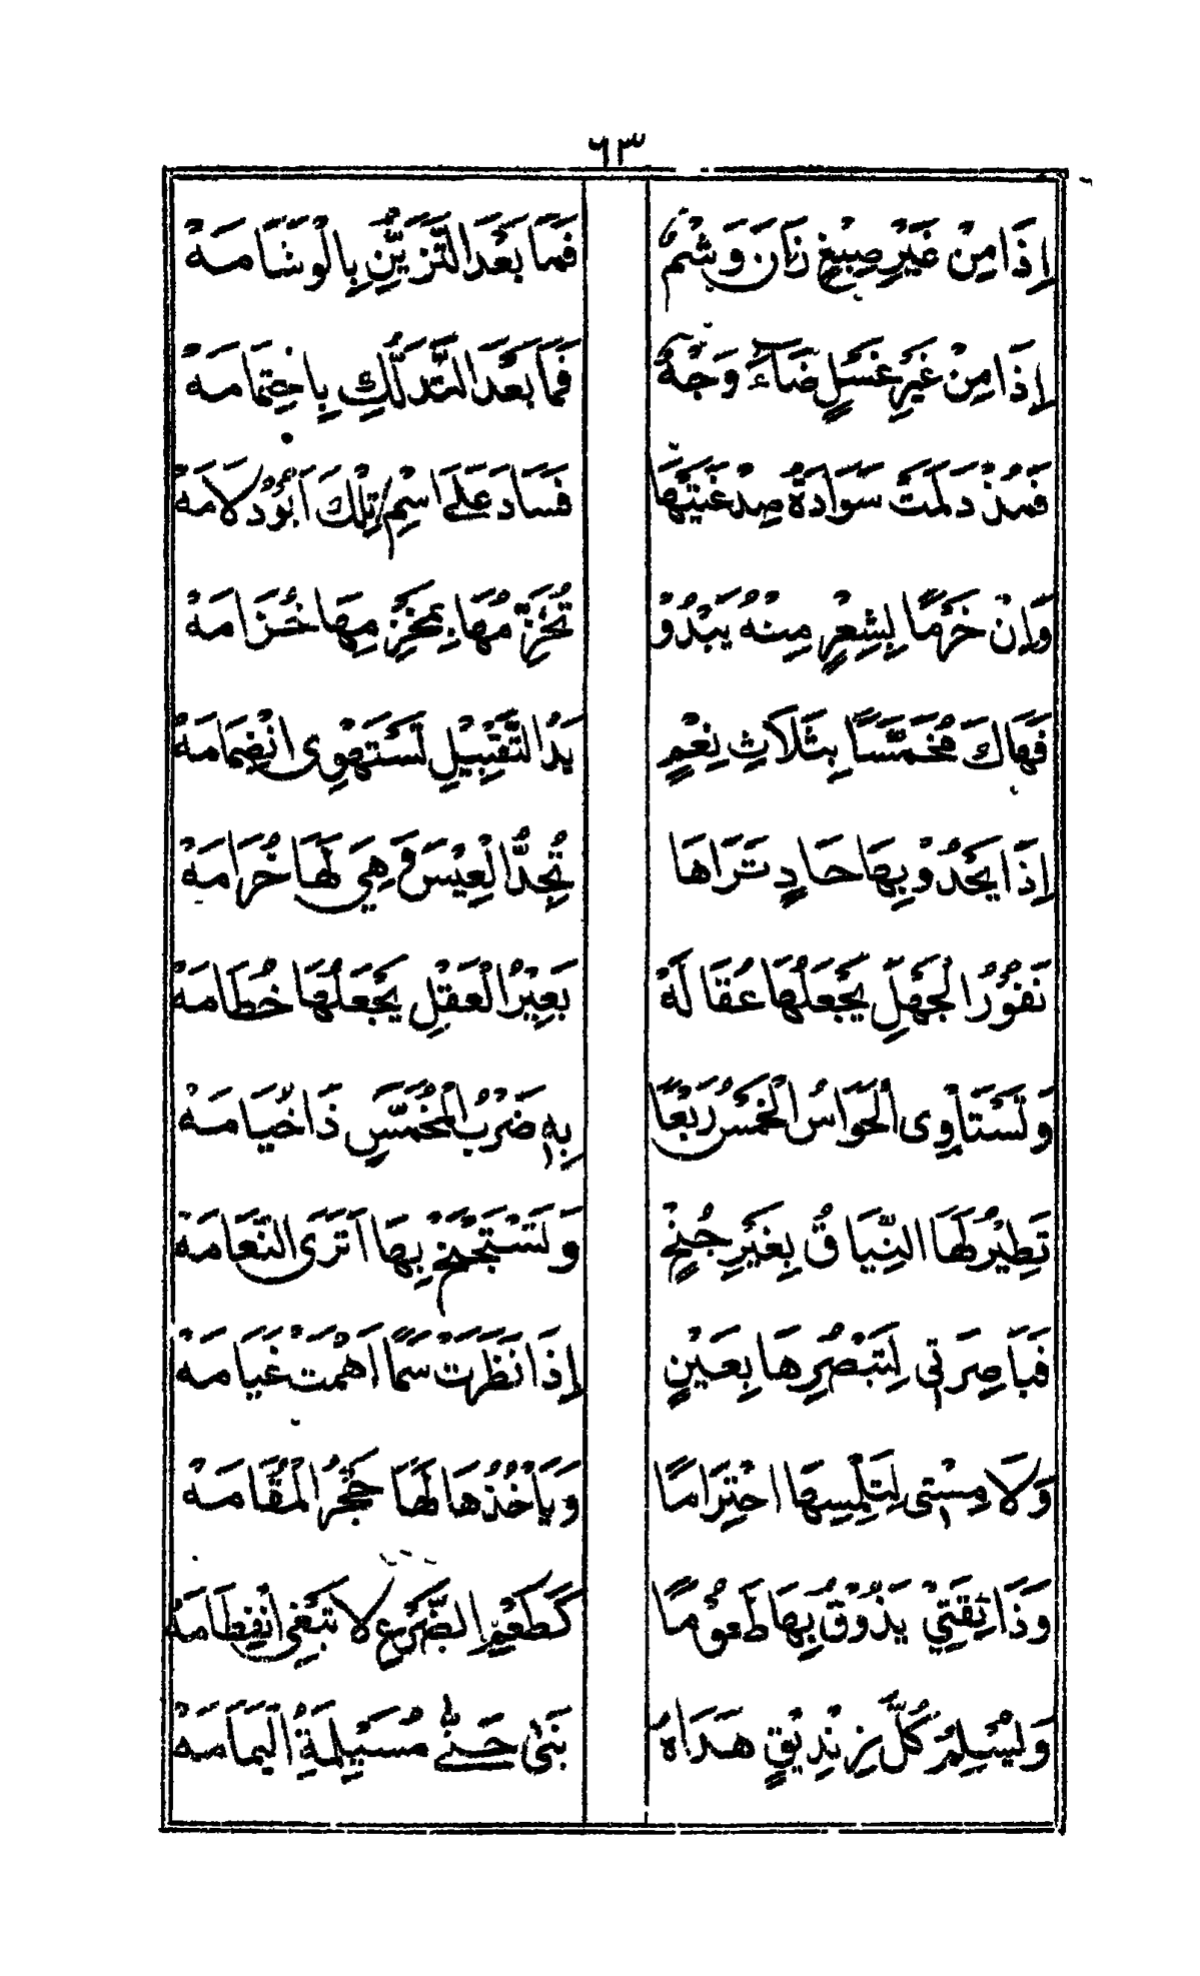 ٦٣
إِذَا مِنْ غَيْرِ صِبْغٍ زَانَ وَشْمٌ فَمَا بَعْدَ التَّزَيُّنِ بِالْوَشَامَهْ
إِذَا مِنْ غَيْرِ غَسْلٍ ضَاءَ وَجْهٌ فَمَا بَعْدَ التَّدَلُّكِ بِاخْتِمَامَهْ
فَمُذْ دَلَمَتْ سَوَادَةُ صِدْغَيْتَهَا فَسَادَ عَلَى اسْمِ تِلْكَ أَبُو دُلَامَهْ
وَإِنْ خَرْمًا بِشِعْرٍ مِنْهُ يَبْدُوْ تُخَرِّزُ مُهَا بِمَخْرِزِمِهَا خُزَامَهْ
فَهَاكَ مُخَمَّسًا بِثَلَاثِ نِعْمٍ يَدُ التَّقْبِيْلِ تَسْتَهْوِى انْضِمَامَهْ
إِذَا يَحْدُوْ بِهَا حَادٍ تَرَاهَا تُجِدُّ الْعِيْسَ وَهِيَ لَهَا خُرَامَهْ
نَفُوْرُ الْجَهْلِ يَجْعَلُهَا عُقَالَهْ بَعِيْرُ الْعَقْلِ يَجْعَلُهَا خُطَامَهْ
وَتَسْتَاْوِى الْحَوَاسُ الْخَمْسُ رَبْعًا بِهٖ ضَرْبُ الْمُخَمَّسِ ذَا خِيَامَهْ
تَطِيْرُ لَهَا النِّيَاقُ بِغَيْرِ جُنْحٍ وَتَسْتَجْنِحْ بِهَا أَتَرَى النَّعَامَهْ
فَبَاصِرَتِى لِتَبْصُرِهَا بِعَيْنٍ إِذَا نَظَرَتْ سَمًا أَهْمَتْ غَيَامَهْ
وَلَا مِسْتِى لِتَلْمِسِهَا احْتِرَامًا وَيَاْخُذُهَا لَهَا حَجْرُ الْمُقَامَهْ
وَذَائِقَتِيْ يَذُوْقُ بِهَا طَعُوْمًا كَطَعْمِ الضَّرْعِ لَا تَبْغِى انْفِطَامَهْ
وَلْيُسْلِمْ كُلُّ زِنْدِيْقٍ هَدَاهُ بَنِىْ حَتّٰى مُسَيْلِمَةُ الْيَمَامَهْ